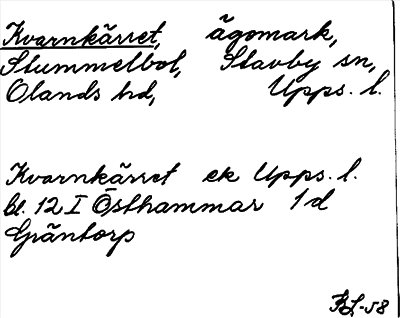 Kvarnkärret, ägomark,
Stummelbol, Stavby sn,
Olands hd, Upps. l.
Kvarnkärret ek Upps. l.
bl. 12 I Östhammar 1 d
Gräntorp
BL-58